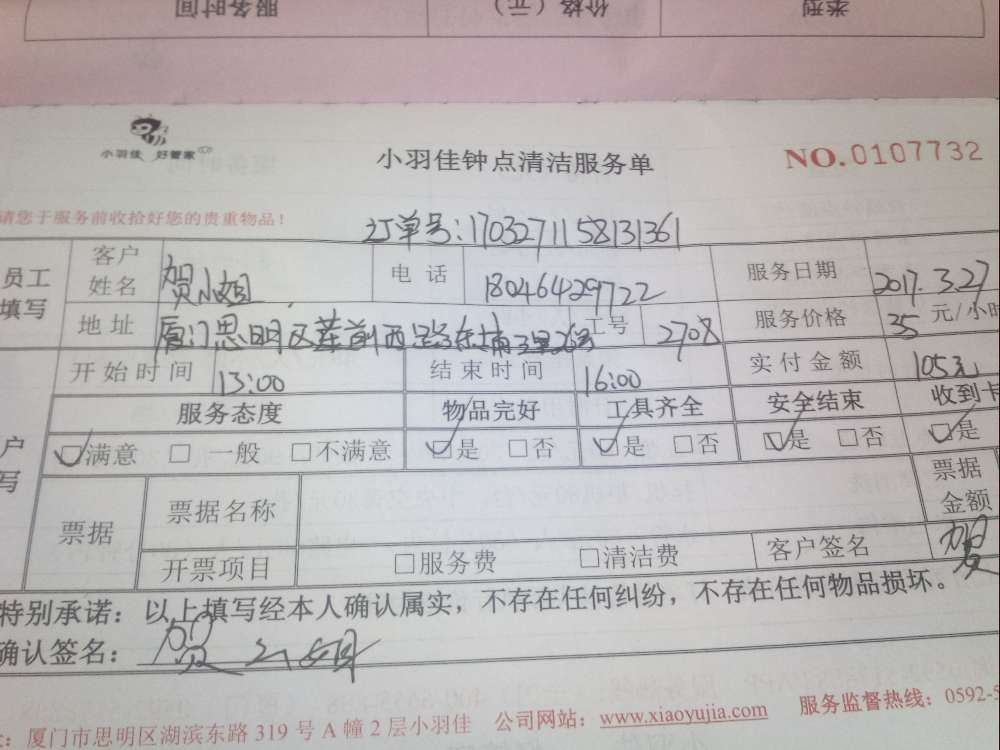 服务时间 价格（元） 类型
小羽佳 好管家
小羽佳钟点清洁服务单 NO.0107732
请您于服务前收拾好您的贵重物品！
订单号:1703271158131361
员工填写 客户姓名 贺小姐 电话 18046429722 服务日期 2017.3.27
地址 厦门思明区莲前西路东埔三里26号 工号 2708 服务价格 35 元/小时
开始时间 13:00 结束时间 16:00 实付金额 105元
服务态度 物品完好 工具齐全 安全结束 收到卡
户写 ☑满意 □ 一般 □不满意 ☑是 □否 ☑是 □否 ☑是 □否 ☑是
票据 票据名称 票据金额
开票项目 □服务费 □清洁费 客户签名 贺
特别承诺：以上填写经本人确认属实，不存在任何纠纷，不存在任何物品损坏。
确认签名： 贺小姐
厦门市思明区湖滨东路 319 号 A 幢 2 层小羽佳 公司网站：www.xiaoyujia.com 服务监督热线：0592-5